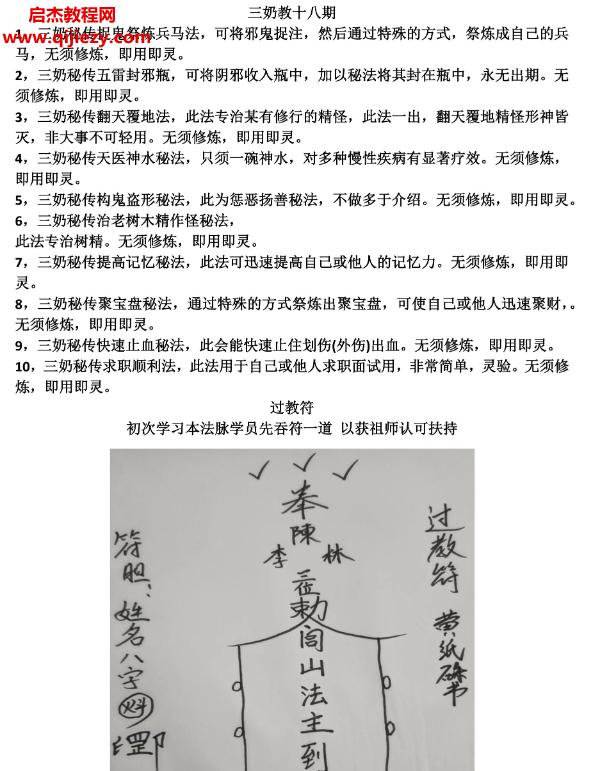 三奶教十八期
启杰教程网
www.qijiezy.com
1，三奶秘传捉鬼祭炼兵马法，可将邪鬼捉注，然后通过特殊的方式，祭炼成自己的兵
马，无须修炼，即用即灵。
2，三奶秘传五雷封邪瓶，可将阴邪收入瓶中，加以秘法将其封在瓶中，永无出期。无
须修炼，即用即灵。
3，三奶秘传翻天覆地法，此法专治某有修行的精怪，此法一出，翻天覆地精怪形神皆
灭，非大事不可轻用。无须修炼，即用即灵。
4，三奶秘传天医神水秘法，只须一碗神水，对多种慢性疾病有显著疗效。无须修炼，
即用即灵。
5，三奶秘传构鬼盗形秘法，此为惩恶扬善秘法，不做多于介绍。无须修炼，即用即灵。
6，三奶秘传治老树木精作怪秘法，
此法专治树精。无须修炼，即用即灵。
7，三奶秘传提高记忆秘法，此法可迅速提高自己或他人的记忆力。无须修炼，即用即
灵。
8，三奶秘传聚宝盘秘法，通过特殊的方式祭炼出聚宝盘，可使自己或他人迅速聚财，。
无须修炼，即用即灵。
9，三奶秘传快速止血秘法，此会能快速止住划伤(外伤)出血。无须修炼，即用即灵。
10，三奶秘传求职顺利法，此法用于自己或他人求职面试用，非常简单，灵验。无须修
炼，即用即灵。
过教符
初次学习本法脉学员先吞符一道 以获祖师认可扶持
奉
陳
李 林
三位
敕
闾山法主到
过教符 黄纸硃书
符胆：姓名八字
罡